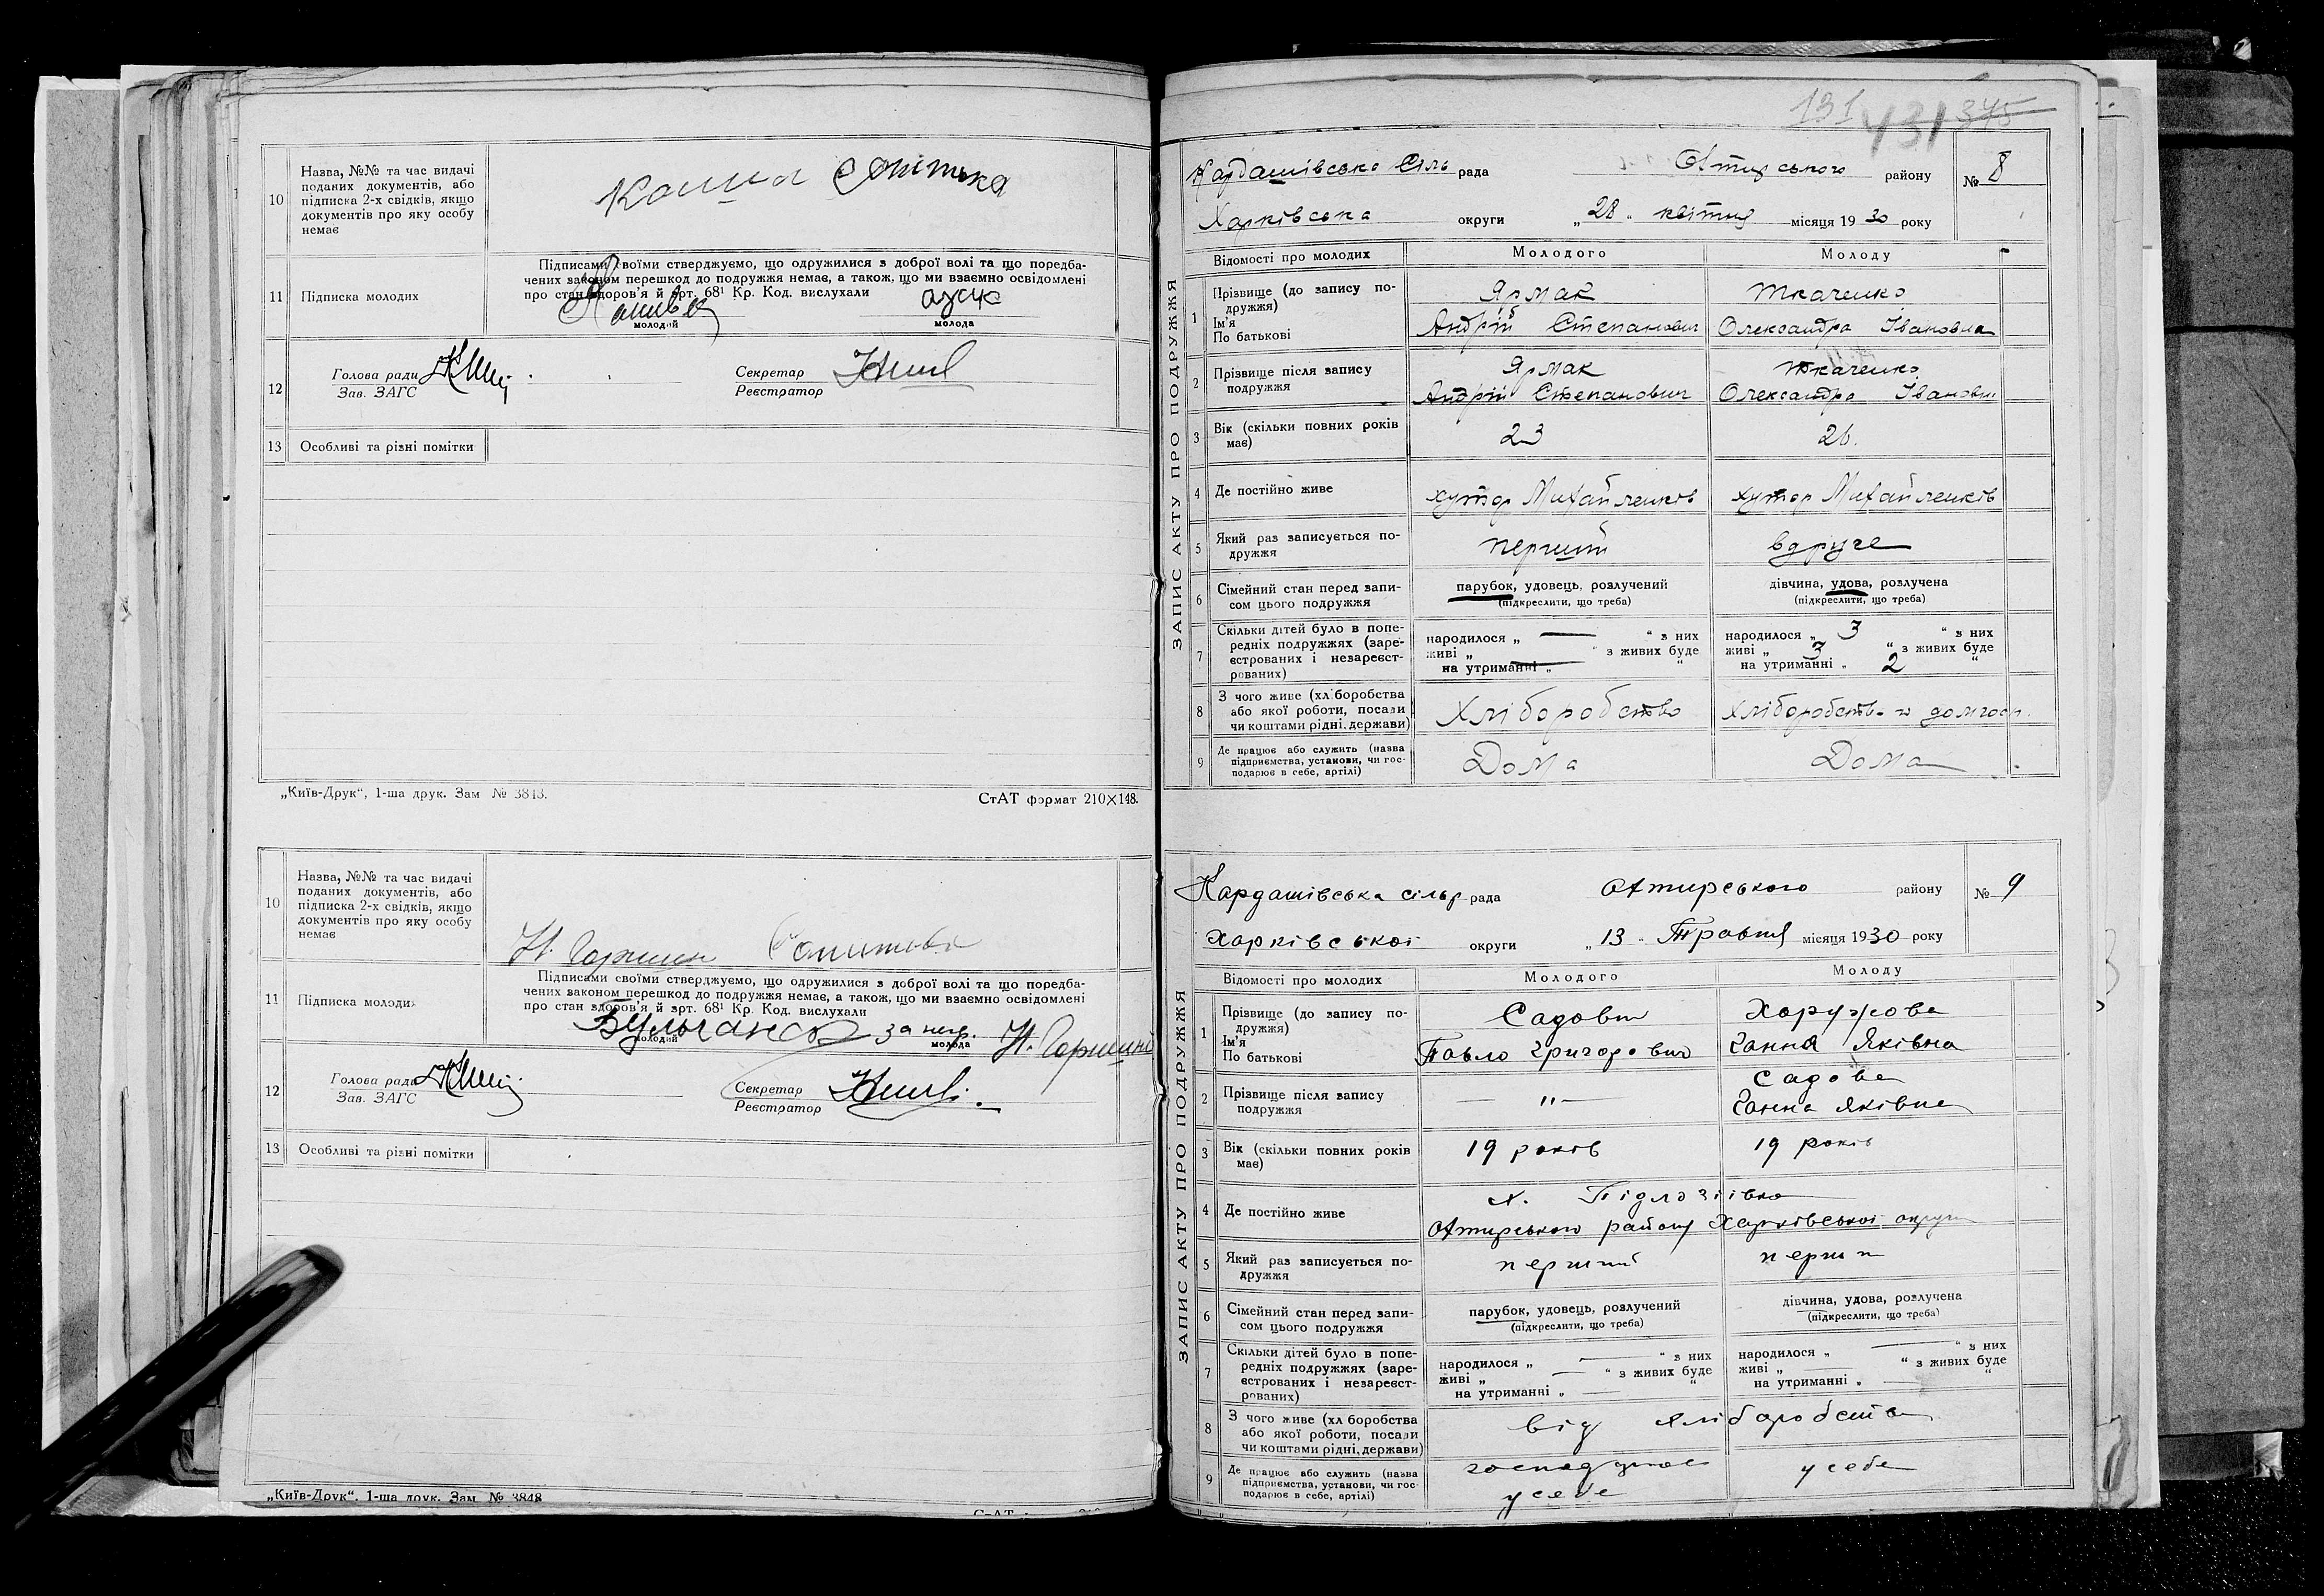 10
Назва, №№ та час видачі
поданих документів, або
підписка 2-х свідків, якщо
документів про яку особу
немає
11
Підписка молодих
Підписами своїми стверджуємо, що одружилися з доброї волі та що поредба-
чених законом перешкод до подружжя немає, а також, що ми взаємно освідомлені
про стан здоров'я й арт. 68¹ Кр. Код. вислухали
молодий
молода
12
Голова ради
Зав. ЗАГС
Секретар
Реєстратор
13
Особливі та різні помітки
„Київ-Друк“, 1-ша друк. Зам № 3843.
СтАТ формат 210×148.
10
Назва, №№ та час видачі
поданих документів, або
підписка 2-х свідків, якщо
документів про яку особу
немає
11
Підписка молодих
Підписами своїми стверджуємо, що одружилися з доброї волі та що поредба-
чених законом перешкод до подружжя немає, а також, що ми взаємно освідомлені
про стан здоров'я й арт. 68¹ Кр. Код. вислухали
за негр.
молодий
молода
12
Голова ради
Зав. ЗАГС
Секретар
Реєстратор
13
Особливі та різні помітки
„Київ-Друк“, 1-ша друк. Зам № 3848
131 431 375
Кардашівська Сіль рада Охтирського району № 8
Харківська округи „28“ квітня місяця 1930 року
ЗАПИС АКТУ ПРО ПОДРУЖЖЯ
Відомості про молодих Молодого Молоду
1 Прізвище (до запису по-
дружжя)
Ім'я
По батькові
Ярмак
Андрій Степанович
Ткаченко
Олександра Івановна
2 Прізвище після запису
подружжя
Ярмак
Андрій Степанович
Ткаченко
Олександра Іванівн
3 Вік (скільки повних років
має)
23
26.
4 Де постійно живе
хутор Михайленків
хутор Михайленків
5 Який раз записується по-
дружжя
перший
вдруге
6 Сімейний стан перед запи-
сом цього подружжя
парубок, удовець, розлучений
(підкреслити, що треба)
дівчина, удова, розлучена
(підкреслити, що треба)
7 Скільки дітей було в попе-
редніх подружжях (заре-
єстрованих і незареєст-
рованих)
народилося „ — “ з них
живі „ “ з живих буде
на утриманні „ — “
народилося „ 3 “ з них
живі „ 3 “ з живих буде
на утриманні „ 2 “
8 З чого живе (хліборобства
або якої роботи, посади
чи коштами рідні, держави)
Хліборобство
9 Де працює або служить (назва
підприємства, установи, чи гос-
подарює в себе, артілі)
Дома
Дома
Кардашівська сільр рада Охтирського району № 9
Харківської округи „13“ Травня місяця 1930 року
ЗАПИС АКТУ ПРО ПОДРУЖЖЯ
Відомості про молодих Молодого Молоду
1 Прізвище (до запису по-
дружжя)
Ім'я
По батькові
Садовий
Павло Григорович
Харужова
Ганна Яківна
2 Прізвище після запису
подружжя
— " —
Садова
Ганна Яківна
3 Вік (скільки повних років
має)
19 років
19 років
4 Де постійно живе
х. Підлозіївка
Охтирського району Харківської округи
5 Який раз записується по-
дружжя
перший
перши
6 Сімейний стан перед запи-
сом цього подружжя
парубок, удовець, розлучений
(підкреслити, що треба)
дівчина, удова, розлучена
(підкреслити, що треба)
7 Скільки дітей було в попе-
редніх подружжях (заре-
єстрованих і незареєст-
рованих)
народилося „ — “ з них
живі „ — “ з живих буде
на утриманні „ — “
народилося „ — “ з них
живі „ — “ з живих буде
на утриманні „ — “
8 З чого живе (хліборобства
або якої роботи, посади
чи коштами рідні, держави)
від хліборобства
9 Де працює або служить (назва
підприємства, установи, чи гос-
подарює в себе, артілі)
у себе
у себе